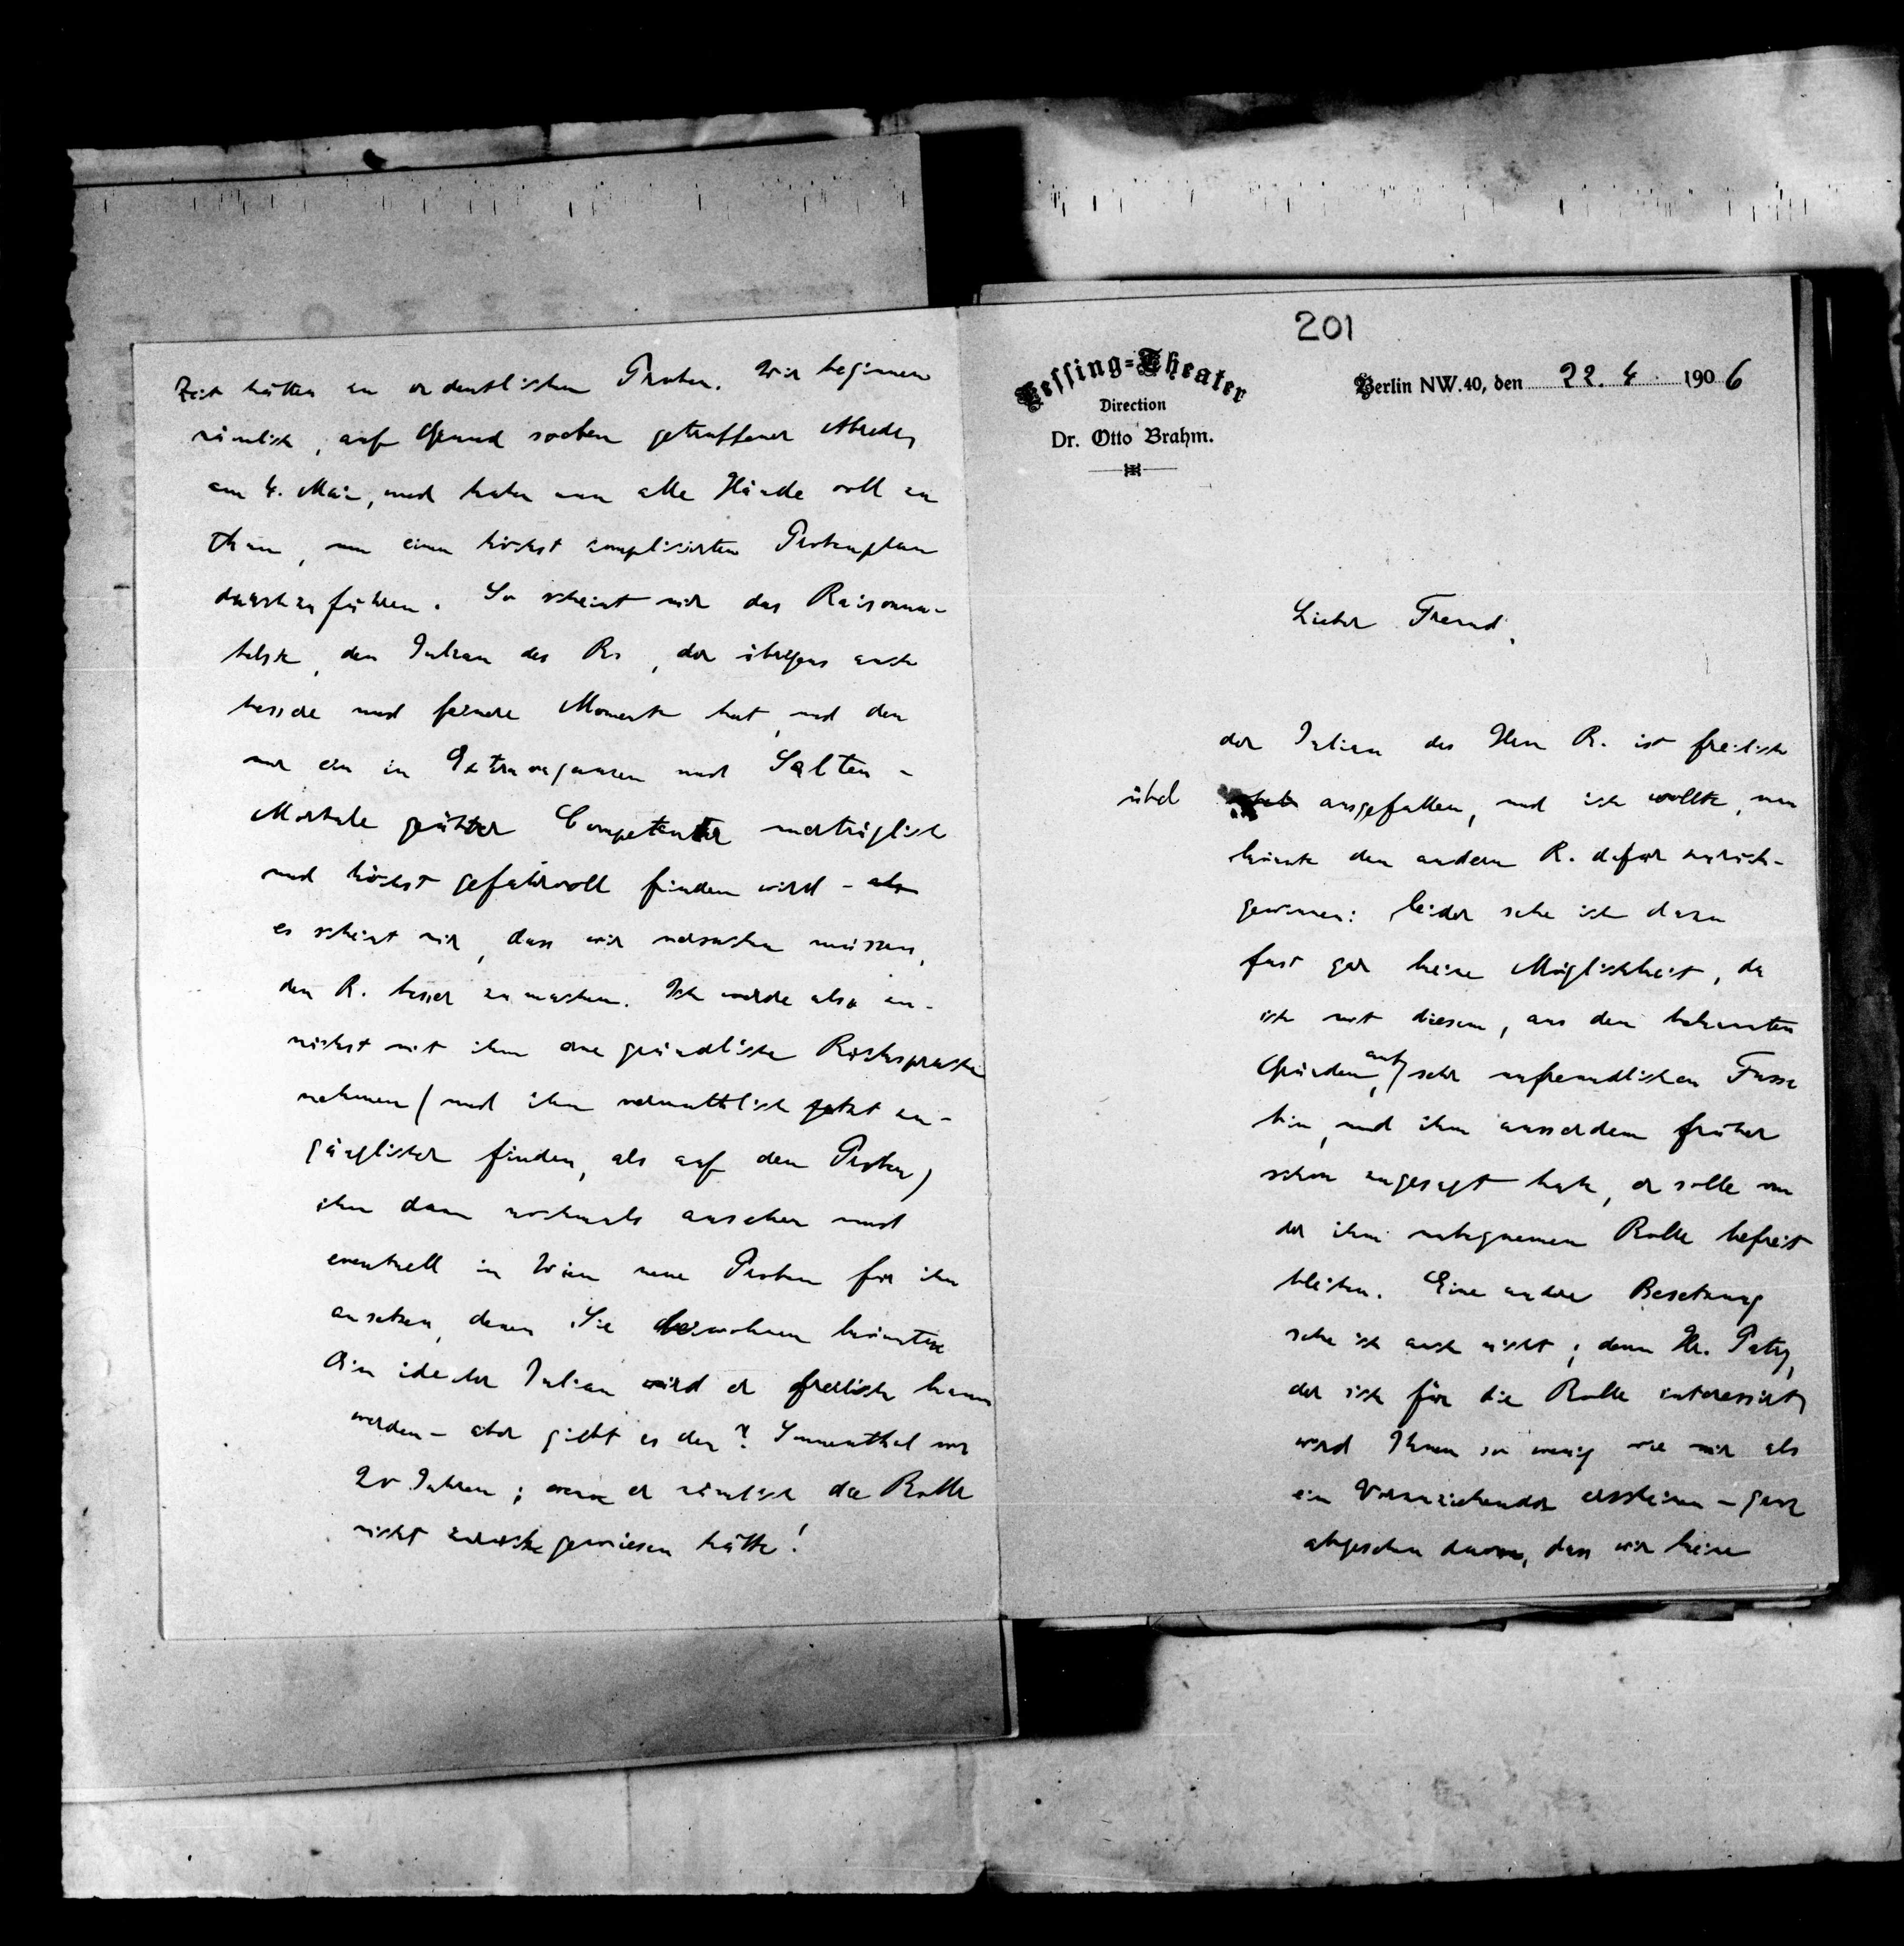 201
Lessing=Theater
Direction
Dr. Otto Brahm.
Berlin NW.40, den 22. 4. 1906
Lieber Freund,
der Julian des Herrn R. ist freilich
übel ausgefallen, und ich wollte, man
könnte den andern R. dafür zurück-
gewinnen: leider sehe ich dazu
fast gar keine Möglichkeit, da
ich mit diesem, aus den bekannten
Gründen, auf sehr unfreundlichem Fusse
bin, und ihm ausserdem früher
schon zugesagt habe, er solle von
der ihm unbequemen Rolle befreit
bleiben. Eine andere Besetzung
sehe ich auch nicht; denn Hr. Patry,
der sich für die Rolle interessirt,
wird Ihnen so wenig wie mir als
ein Vorzuziehender erscheinen – ganz
abgesehen davon, dass wir keine
Zeit hätten zu ordentlichen Proben. Wir beginnen
nämlich, auf Grund soeben getroffener Abrede,
am 4. Mai, und haben nun alle Hände voll zu
thun, um einen höchst complicirten Probenplan
durchzuführen. So scheint mir das Raisonna-
belste, den Julian des Rs, der übrigens auch
bessere und feinere Momente hat, und den
nur ein in Extravaganzen und Salten-
Mortale geübter Competenter unerträglich
und höchst gefahrvoll finden wird – also
es scheint mir, dass wir versuchen müssen,
den R. besser zu machen. Ich werde also zu-
nächst mit ihm eine gründliche Rücksprache
nehmen (und ihn vermuthlich jetzt zu-
gänglicher finden, als auf den Proben)
ihn dann nochmals ansehen und
eventuell in Wien neue Proben für ihn
ansetzen, denen Sie beiwohnen könnten.
Ein idealer Julian wird er freilich kaum
werden – aber giebt es den? Sonnenthal vor
20 Jahren; wenn er nämlich die Rolle
nicht zurückgewiesen hätte!